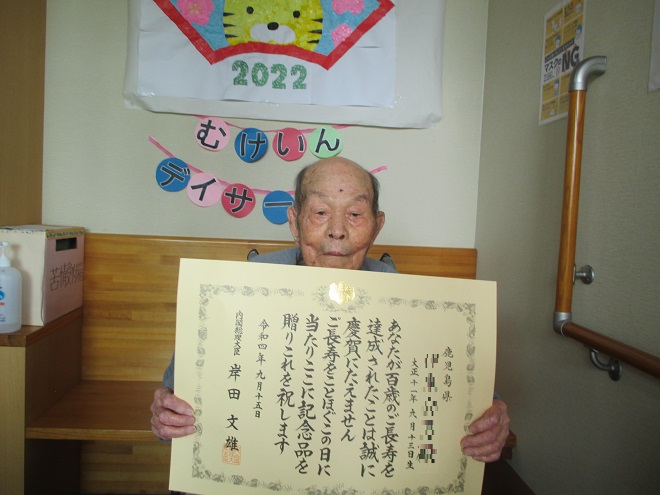 2022
むけいん
デイサー
マスク
NG
鹿児島県
大正十一年九月十三日生
あなたが百歳のご長寿を
達成されたことは誠に
慶賀にたえません
ご長寿をことほぐこの日に
当たりここに記念品を
贈りこれを祝します
令和四年九月十五日
内閣総理大臣 岸田文雄